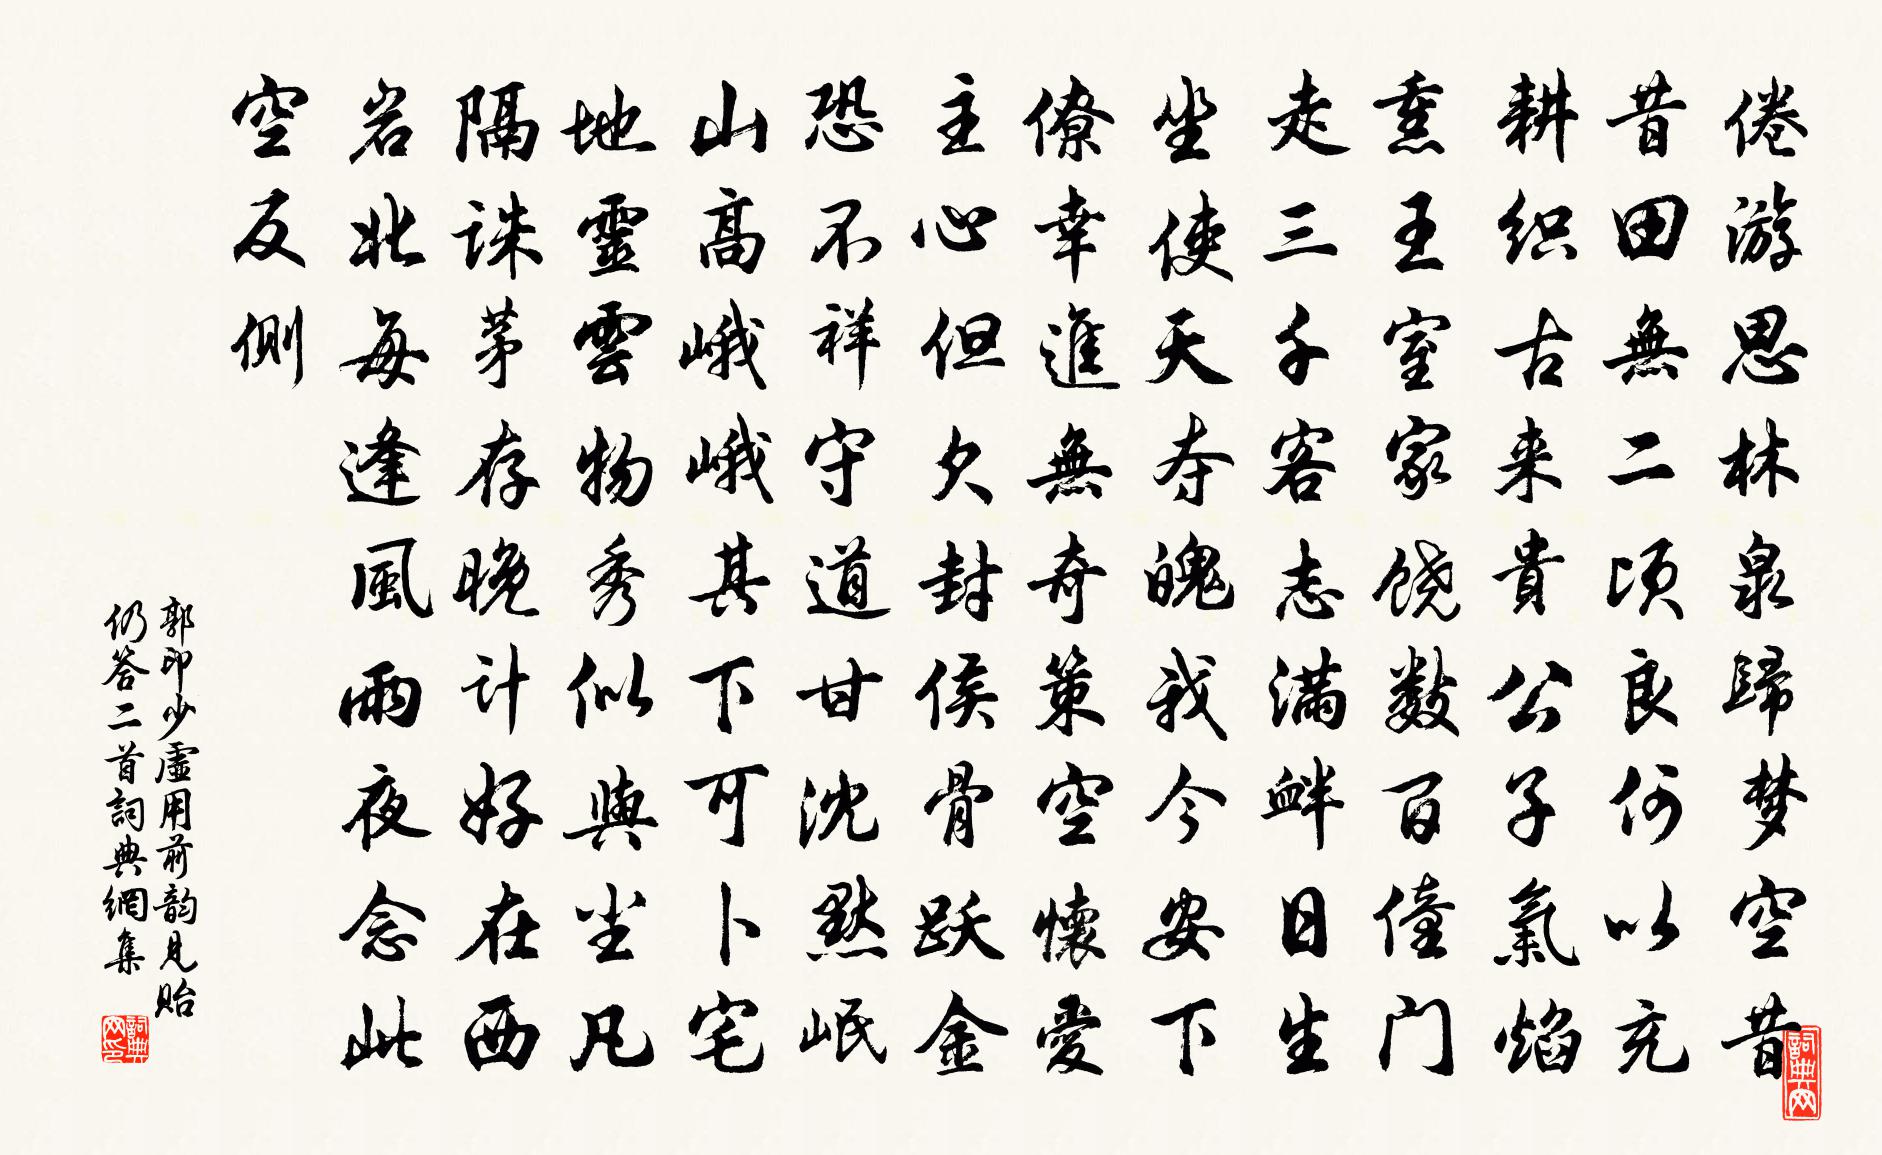 倦游思林泉歸梦空昔
昔田無二顷良何以充
耕织古来貴公子氣焰
熏王室家饶数百僮门
走三千客志满衅日生
坐使天夺魄我今安下
僚幸進無奇策空懷愛
主心但欠封侯骨跃金
恐不祥守道甘沈默岷
山高峨峨其下可卜宅
地靈雲物秀似與尘凡
隔诛茅存晚计好在西
岩北每逢風雨夜念此
空反侧
郭印少虚用前韵見贻
仍答二首詞典網集
詞典网
詞典网印